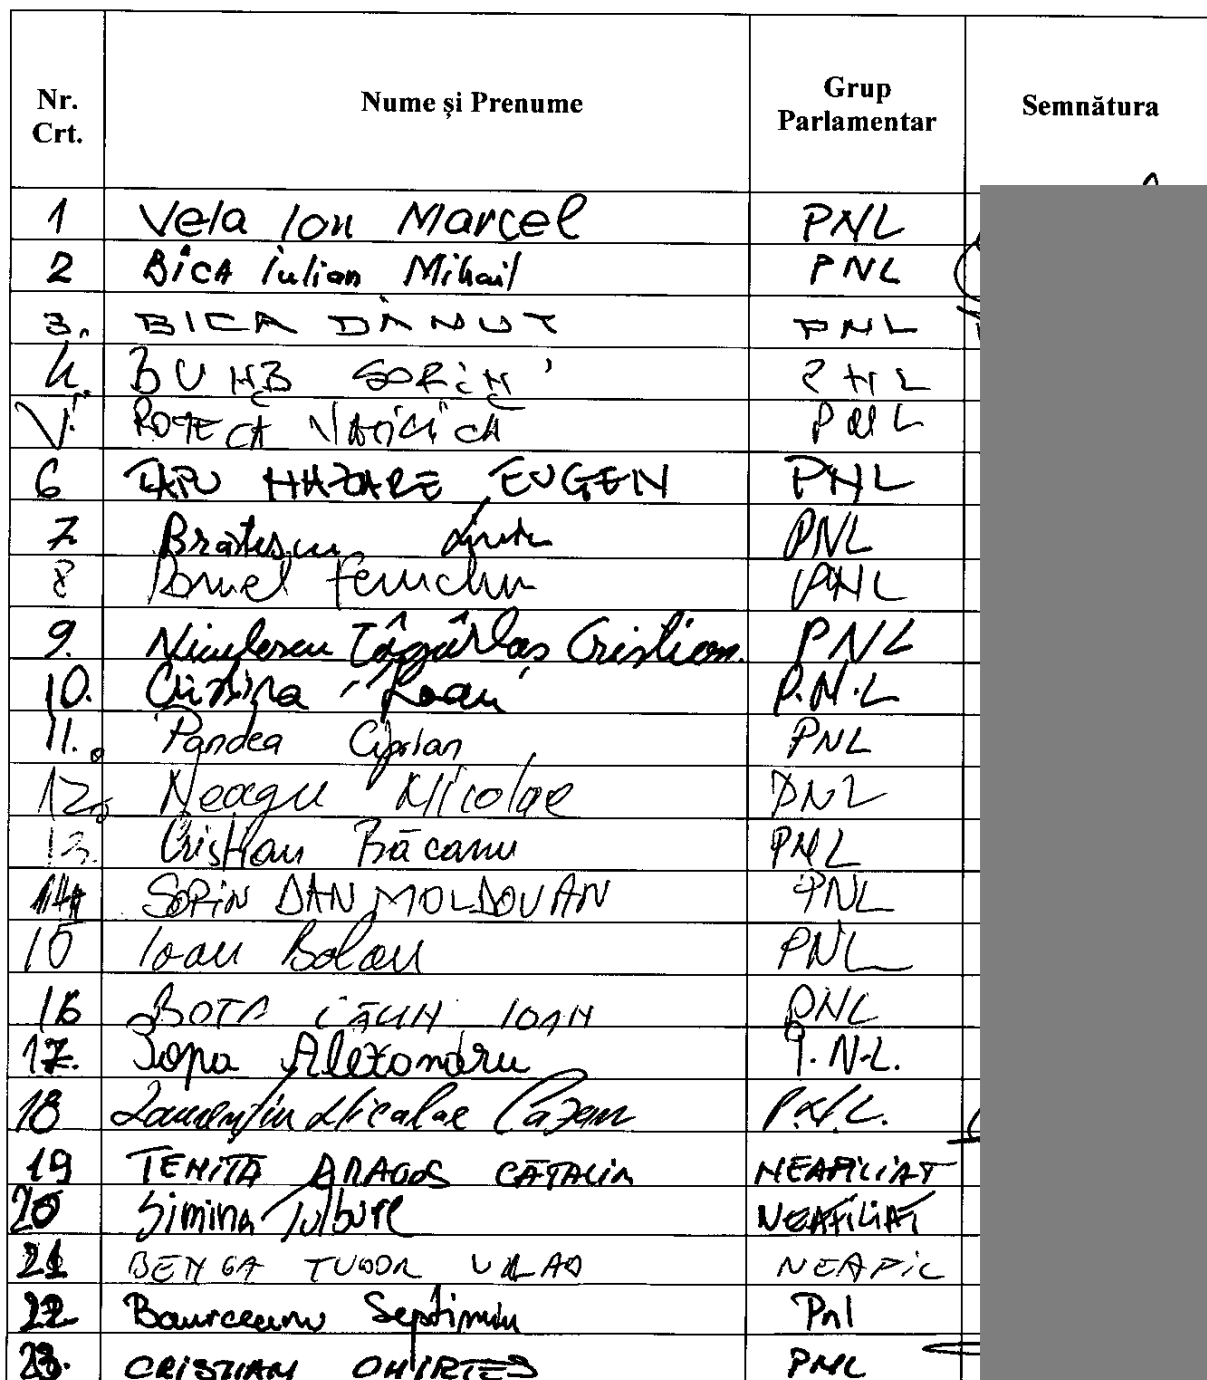 Nr. Crt. Nume și Prenume Grup Parlamentar Semnătura
1 Vela Ion Marcel PNL
2 BICA Iulian Mihail PNL
3. BICA DĂNUȚ PNL
4. SORIN PNL
V. VASILICA PNL
6 EUGEN PNL
7 Brătescu PNL
8 PNL
9. Niculescu Țâgârlaș Cristian PNL
10. Cristina P.N.L
11. Pandea Ciprian PNL
12. Neagu Nicolae PNL
13. Cristian Băcanu PNL
14. SORIN DAN MOLDOVAN PNL
15 Ioan Bolan PNL
16 BOTA CĂLIN IOAN PNL
17. Popa Alexandru P.N.L.
18 Laurențiu Nicolae Cazan P.N.L.
19 CĂTĂLIN NEAFILIAT
20 Simina Tulbure NEAFILIAT
21 BENGA TUDOR VLAD NEAFIL
22 Bourceanu Septimiu Pnl
23. CRISTIAN PNL